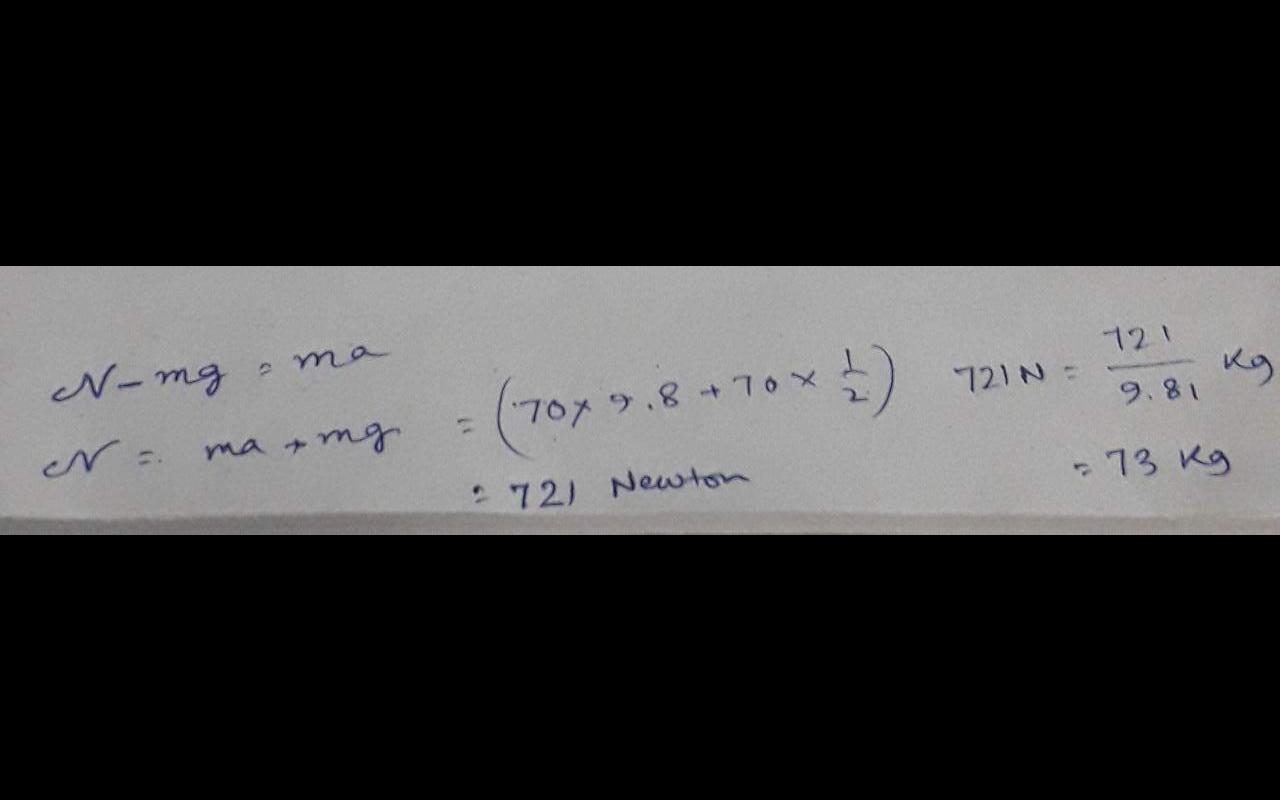 N - mg = ma
N = ma + mg = (70 × 9.8 + 70 × 1/2)
= 721 Newton
721 N = 721/9.81 Kg
= 73 Kg